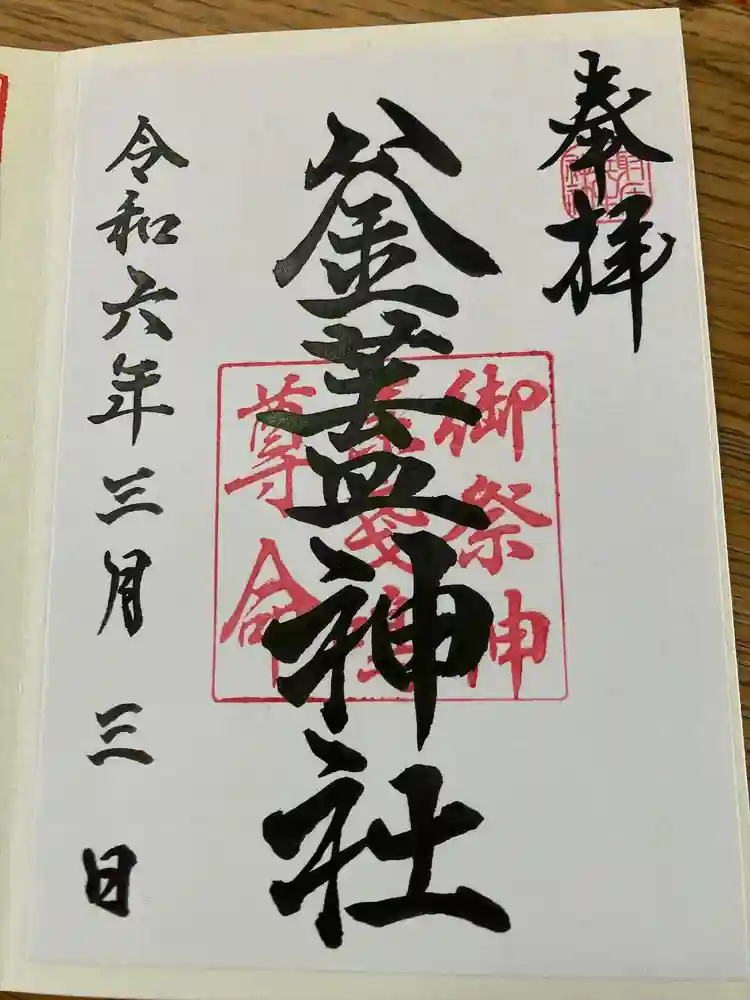 奉拝
釜蓋神社
御祭神
尊命
令和六年三月三日